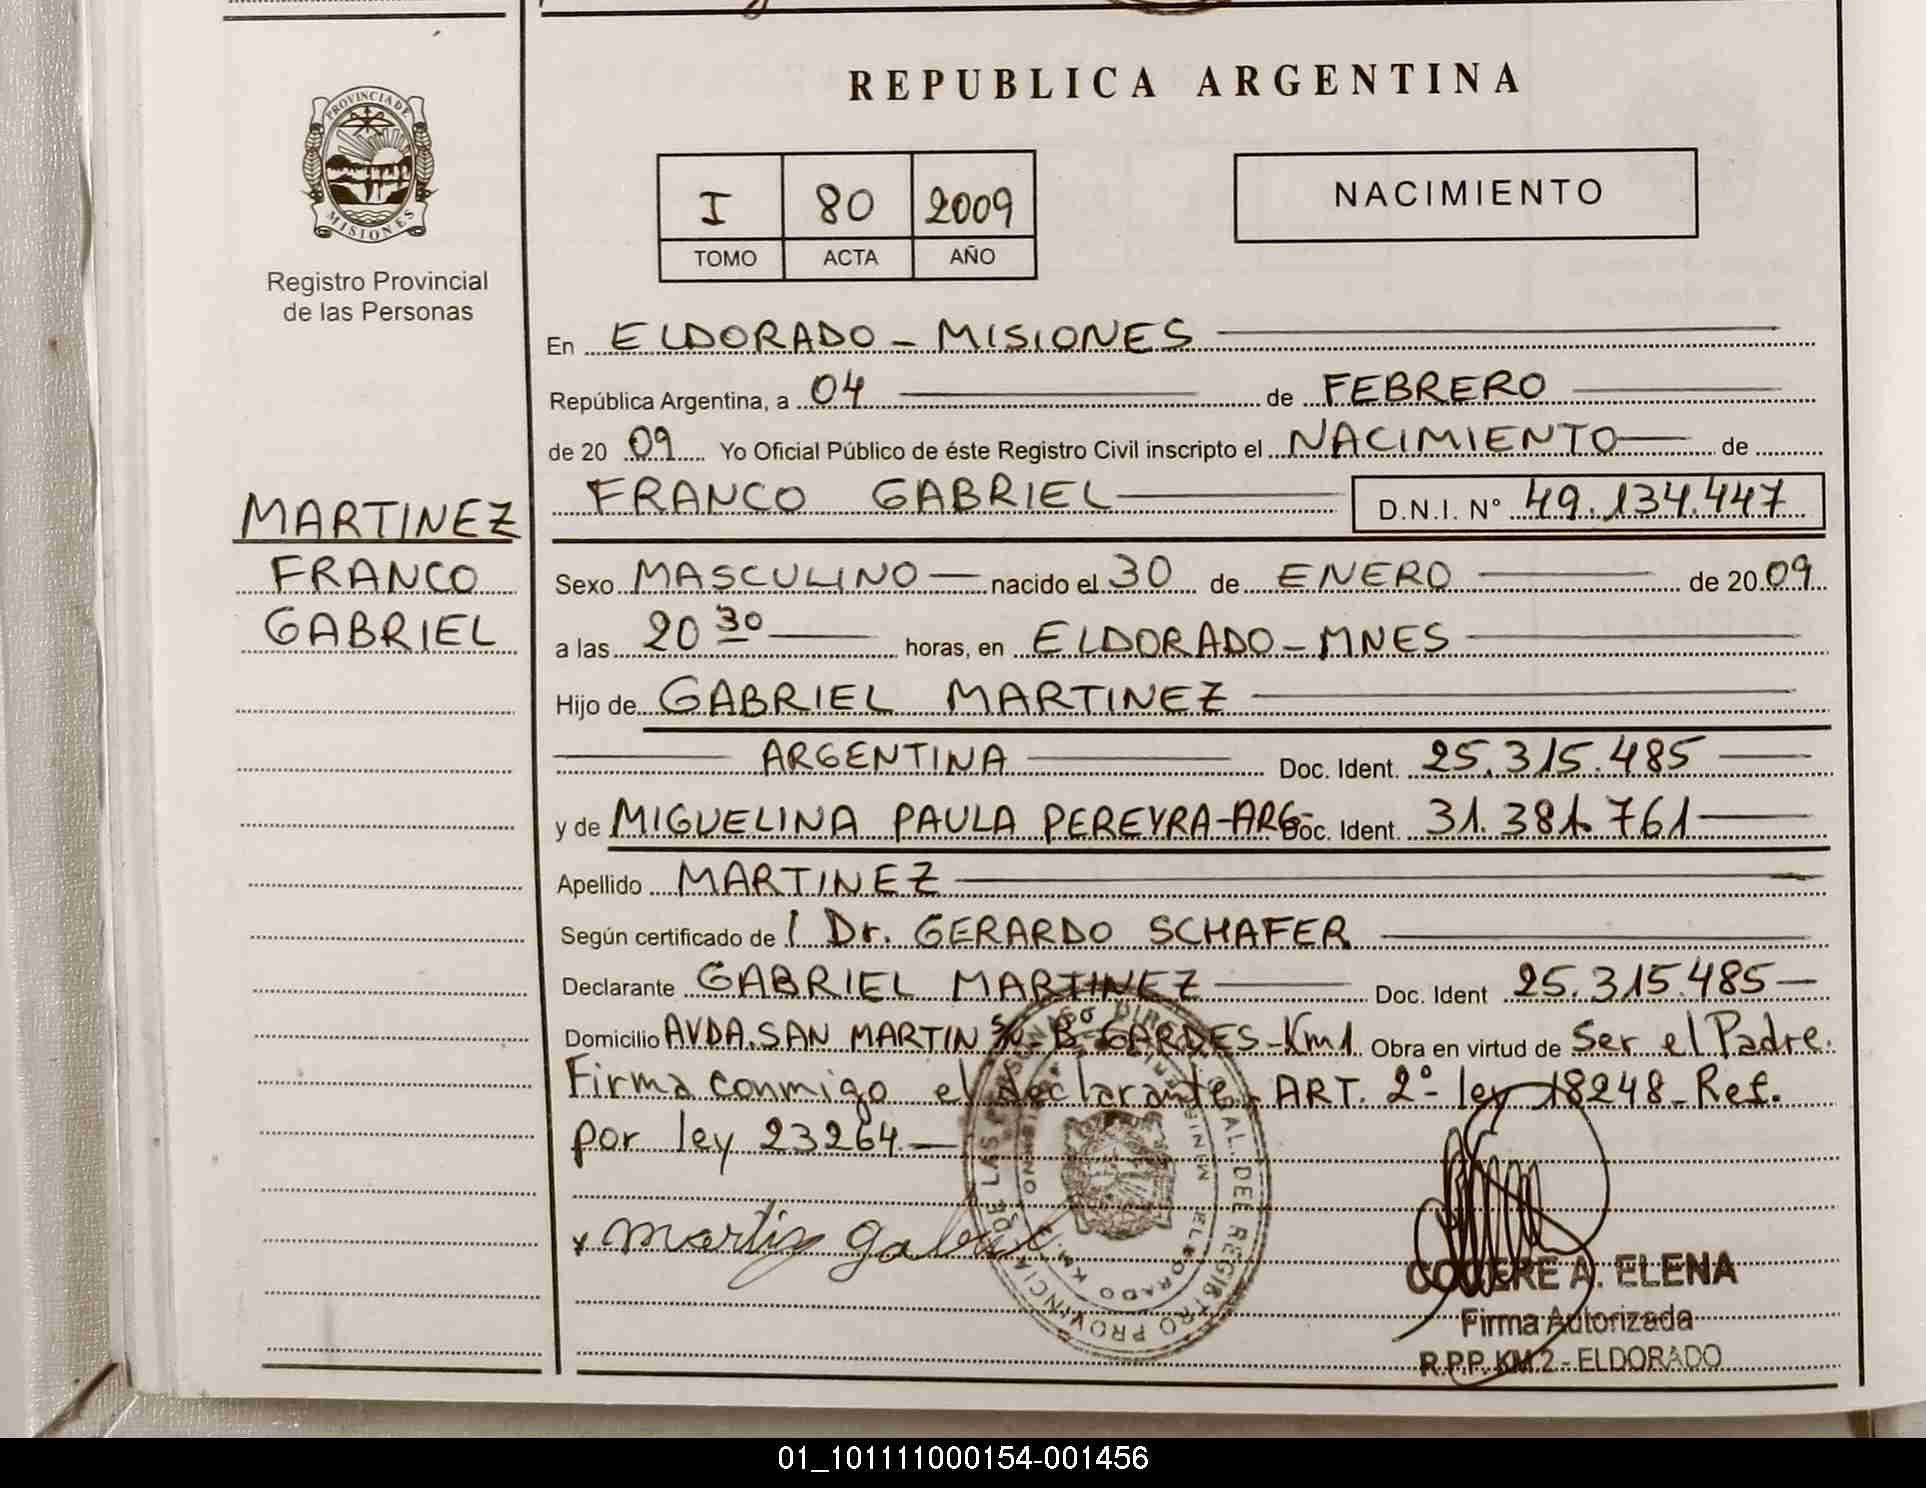 REPUBLICA ARGENTINA
PROVINCIA DE
MISIONES
Registro Provincial
de las Personas
I 80 2009
TOMO ACTA AÑO
NACIMIENTO
En ELDORADO - MISIONES
República Argentina, a 04 de FEBRERO
de 20 09 Yo Oficial Público de éste Registro Civil inscripto el NACIMIENTO de
FRANCO GABRIEL D.N.I. N° 49.134.447
MARTINEZ
FRANCO
GABRIEL
Sexo MASCULINO nacido el 30 de ENERO de 20 09
a las 20 30 horas, en ELDORADO - MNES
Hijo de GABRIEL MARTINEZ
ARGENTINA Doc. Ident. 25.315.485
y de MIGUELINA PAULA PEREYRA-ARG- Doc. Ident. 31.381.761
Apellido MARTINEZ
Según certificado de Dr. GERARDO SCHAFER
Declarante GABRIEL MARTINEZ Doc. Ident 25.315.485
Domicilio AVDA. SAN MARTIN S/N. B- GARDES-Km1. Obra en virtud de Ser el Padre.
Firma conmigo el declarante. ART. 2º ley 18248_Ref.
por ley 23264.
x martiz gabriel
COCERE A. ELENA
Firma Autorizada
R.P.P. KM.2 - ELDORADO
01_101111000154-001456